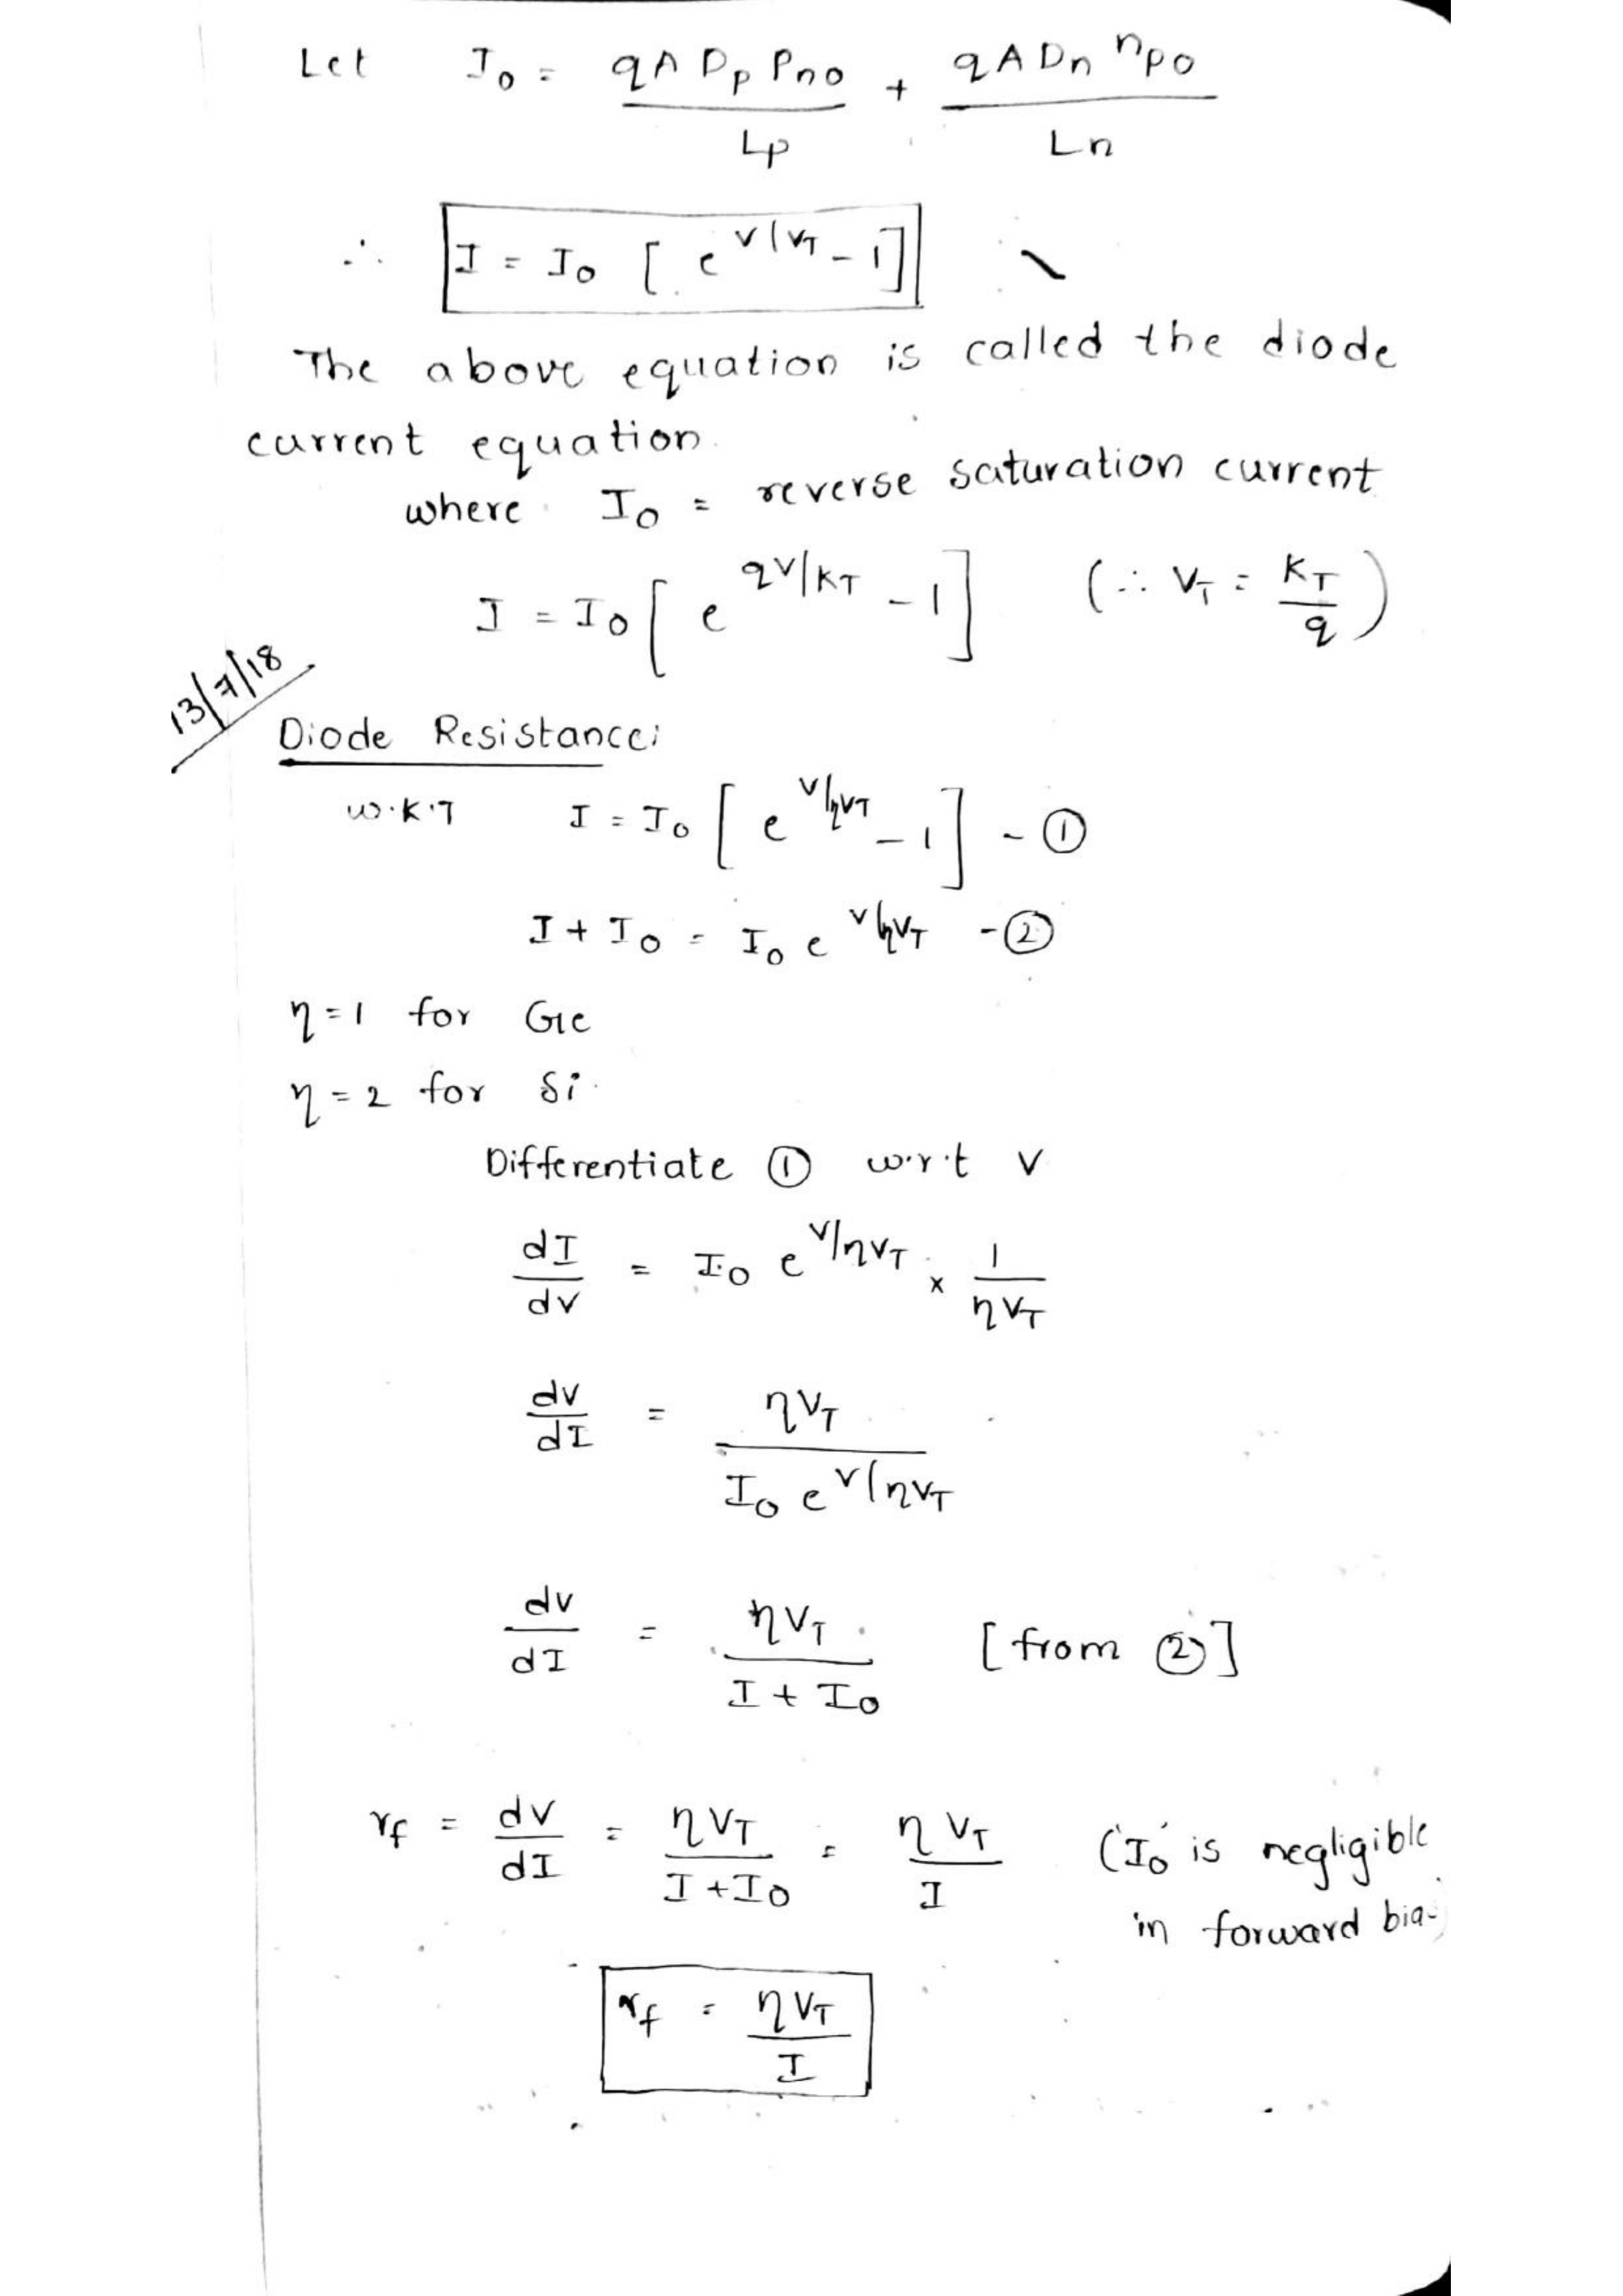 Let I₀ = qADₚPₙ₀/Lₚ + qADₙnₚ₀/Lₙ
∴ I = I₀ [e^(V/V_T) - 1]
The above equation is called the diode
current equation.
where I₀ = reverse saturation current
I = I₀ [e^(qV/KT) - 1] (∵ V_T = KT/q)
13/7/18
Diode Resistance:
w.k.T I = I₀ [e^(V/ηV_T) - 1] - ①
I + I₀ = I₀ e^(V/ηV_T) - ②
η = 1 for Ge
η = 2 for Si.
Differentiate ① w.r.t V
dI/dV = I₀ e^(V/ηV_T) × 1/ηV_T
dV/dI = ηV_T / I₀ e^(V/ηV_T)
dV/dI = ηV_T / I + I₀ [from ②]
r_f = dV/dI = ηV_T / I + I₀ = ηV_T / I ('I₀' is negligible
in forward bia
r_f = ηV_T / I